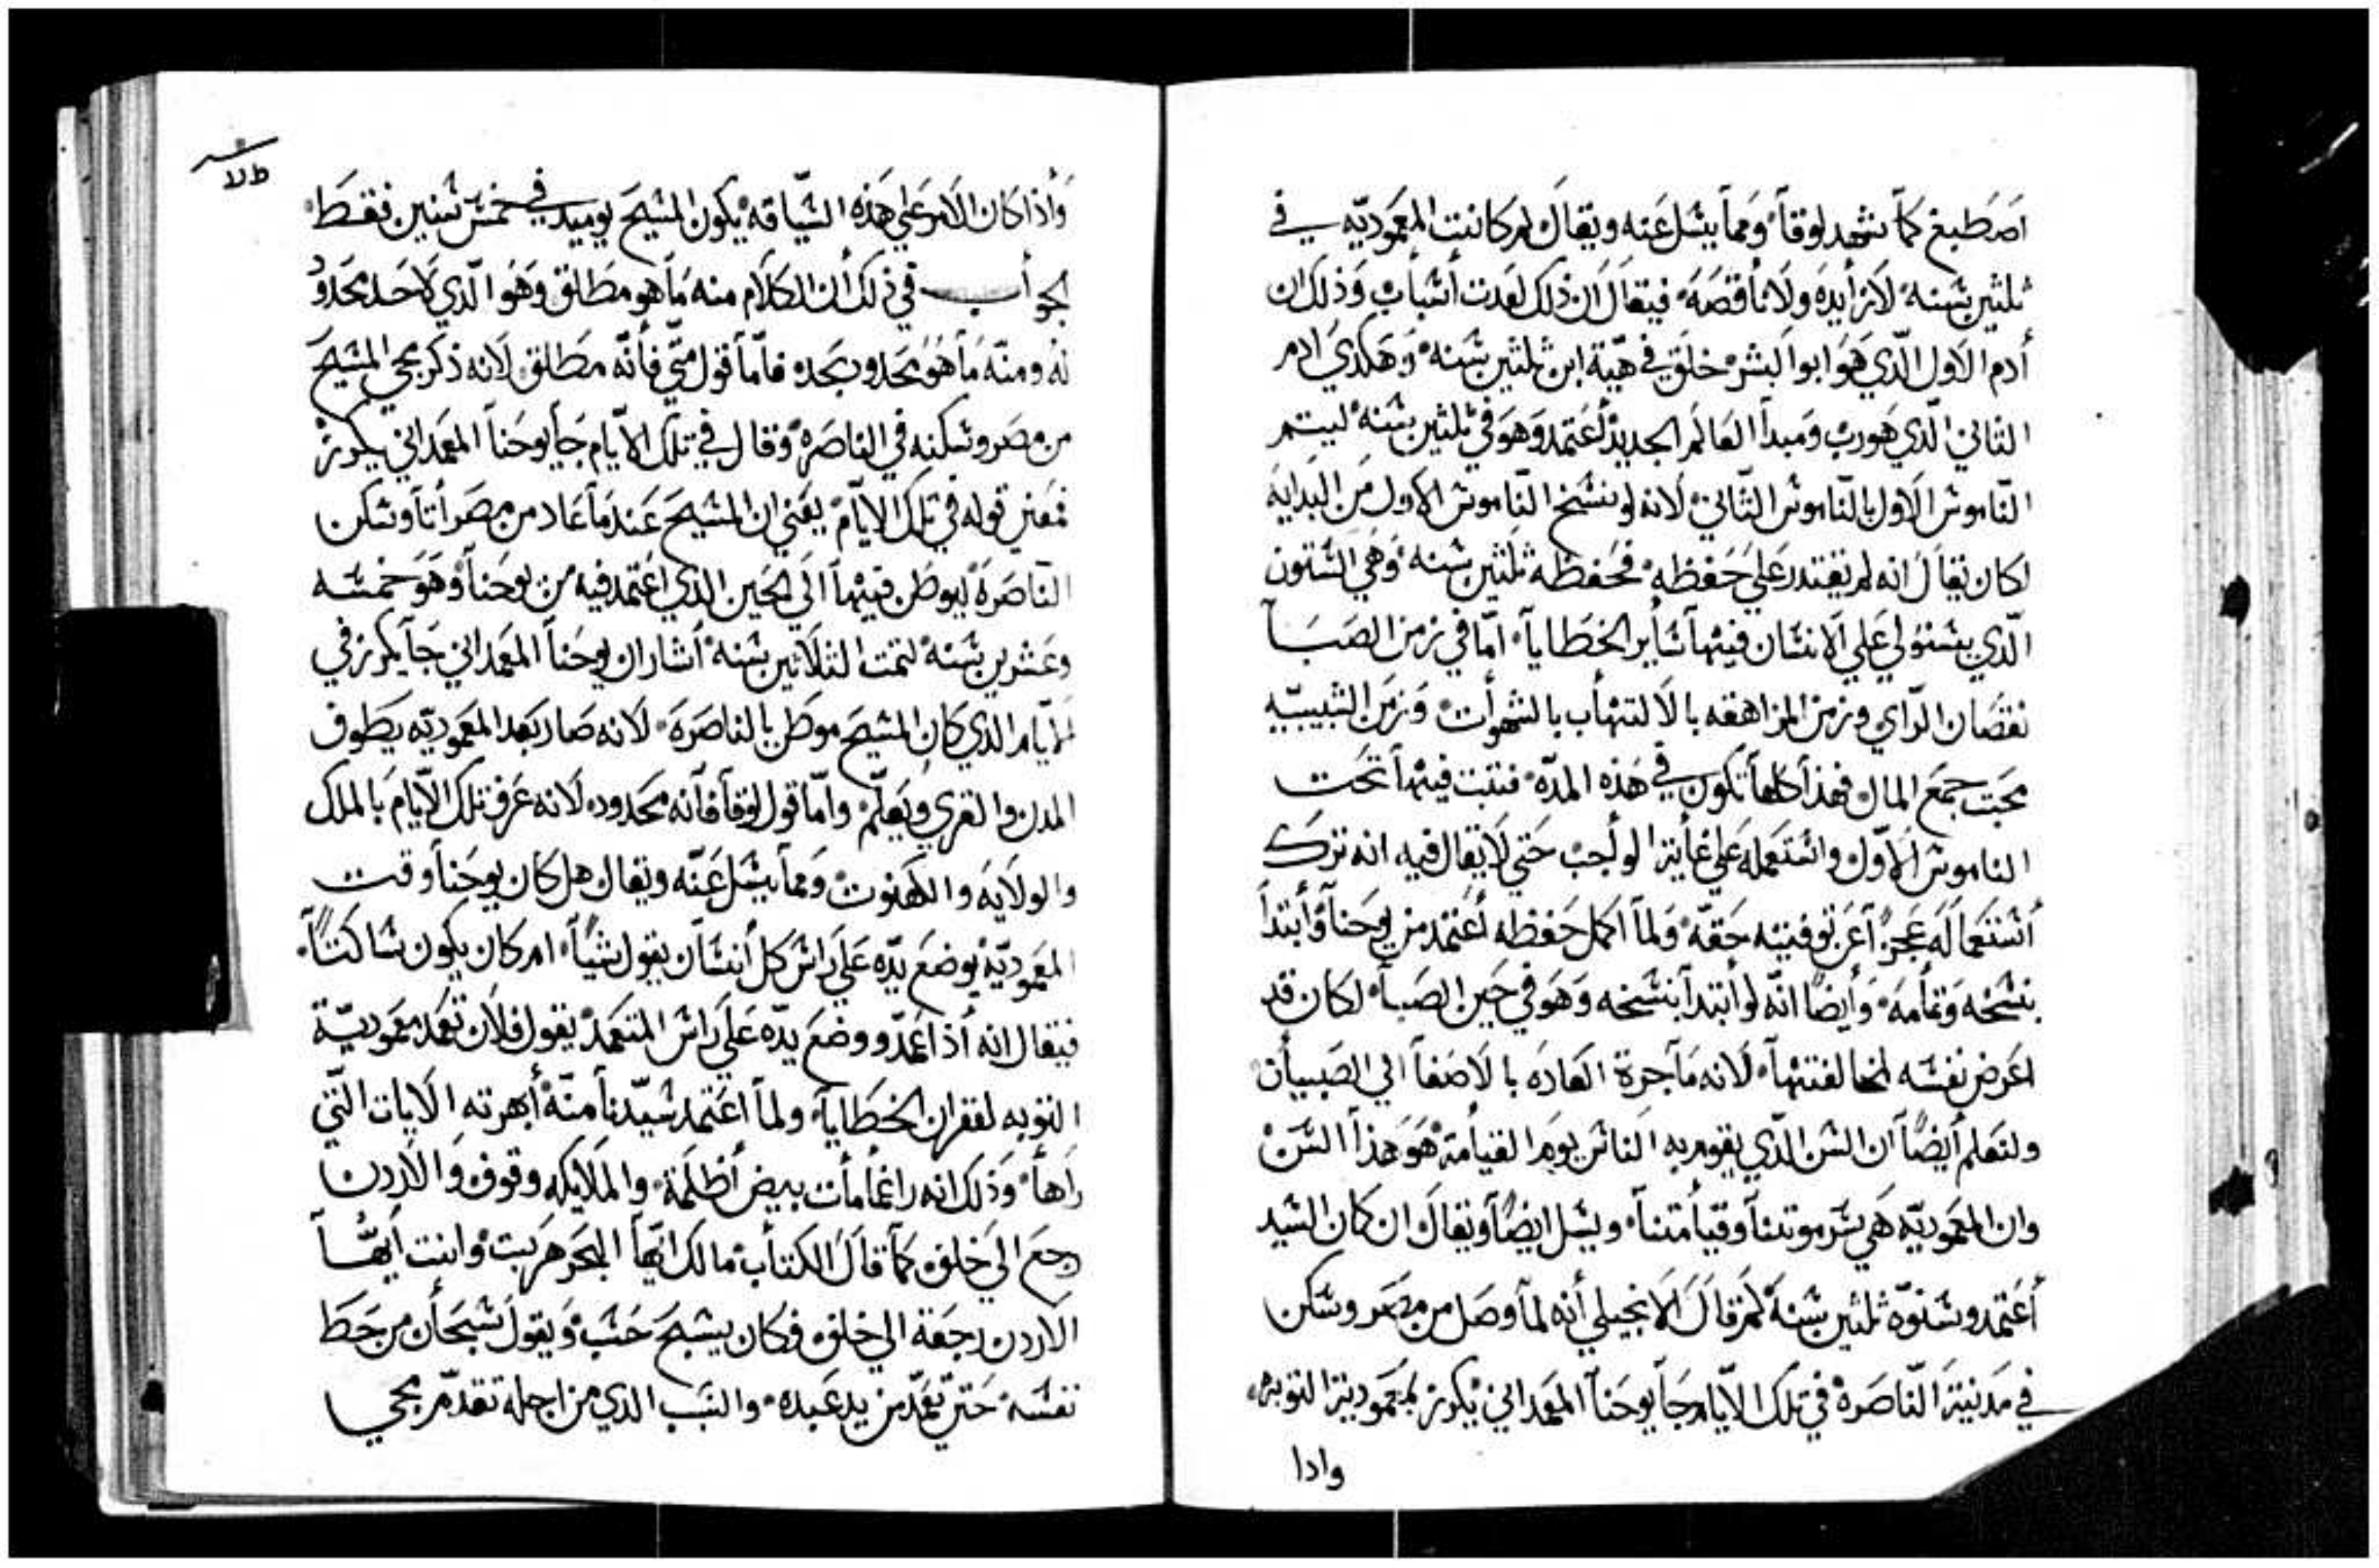 اصَطبغ كمَا شهد لوقاَ وَمما يسَل عَنه ويقاَل لم كانت المعَموديّه في
ثلثين سَنه لاَ زايدَه ولاَ ناقصَهَ فيقاَل ان ذلك لعَدت اسَباب وَذلك ان
أدم الاَول الّدي هَوَ ابوا البشر خلَق في هيّة ابن ثلثين سَنه وَهَكدي ادم
الثاني الّدي هَورب وَمَبدا العَالم الجديد أعَتمد وَهوَ في ثلثين سَنه ليتم
النّاموسَ الاَول بالنّاموسَ الثّاني لاَنه لو ينسَخ النّاموسَ الاول من البَدايه
لكان يقاَل انه لم يقتدر عَلي حَفظه فحَفظه ثلثين سَنه وَهَي السَنون
الّدي يسَتولي عَلي الاَنسَان فيهاَ سَاير الخطاياَ امّا في زمن الصَبَاَ
نقصَان الرّاي وزمن المراهقه بالاَلتهاب بالشهوات وَزمَن الشبيبّيه
محَبت جمَع المال فهَذا كلهَا تكون في هَذه المدّه فتبت فيهاَ تحَت
الناموسَ الاَوّل واسَتعَمله عَلي غاية الواجب حَتي لاَ يقال فيه انه ترك
أسَتعَماَلَه عَجزاً عَن توفيته حَقّه وَلماَ اكمل حَفظه أعَتمد من يوحَناَ وَأبتداَ
بنسَخه وَتمامهَ وَأيضاً انّه لو أبتداَ بنسَخه وَهَوَ في حَين الصَباَ لكان قد
اعَرض نفسَه لمخالفتهاَ لاَنه مَا جرة العَادَه بالاَصَغاَ الي الصَبيان
ولتعَلم أيضاً ان السَن الّدي يقوم به الناسَ يومَ القيامة هَوَ هَذا السَن
وان المعَموديّه هَي سَر موتناَ وقيامتناَ ويسَل ايضاً ويقاَل ان كان السَيد
أعَتمد وسَنوّه ثلثين سَنهَ لمَ قاَل الاَنجيلي أنه لماَ وصَل من مصَر وسَكن
في مَدينة النّاصَرهَ في تلك الاَيّام جَا يوحَناَ المعَمداني يكرز بمعَمودية التوبه
وادا
وَأدا كان الاَمر عَلي هَذه السَيّاقه يكون المسَيحَ يوميد في خمسَ سَنين فقَطَ
الجواب في ذلك أن الكلاَم منه مَا هو مطَلق وَهَوَ الّدي لاَحَد يحَدوُ
له ومنّه مَا هَوَ محَدود بحَده فاَمّا قول متّي فأنّه مطَلق لاَنه ذكر مجي المسَيحَ
من مصَر وسَكنه في الناصَره وَقال في تلك الاَيّام جَا يوحَناَ المعَمداني يكرز
فمعَني قوله في تلك الاَياَم يعَني ان المسَيحَ عَندمَا عَاد من مصَر أتاَ وسَكن
النّاصَرهَ ليوطَن فيهاَ الَي الحَين الدي اعَتمد فيه من يوحَناَ وَهَوَ خمسَه
وعَشرين سَنه لتمت الثلاَثين سَنه أشار ان يوحَناَ المعَمداني جَا يكرز في
الاَيّام الدي كان المسَيحَ موطَن بالناصَرَه لاَنه صَار بَعد المعَموديّه يطَوف
المدن والقري ويَعَلّم وامّا قول لوقاَ فأنه محَدود لاَنه عَرف تلك الاَيّام بالملك
والولاَيه والكهَنوت وَمما يسَل عَنّه ويقال هَل كان يوحَناَ وقت
المعَموديّه يوضعَ يدّه عَلَي راسَ كل أنسَان يقول شياً ام كان يكون سَاكتاً
فيقال انه أدا عَمّد ووضعَ يدّه عَلَي راسَ المتعَمد يقول فلاَن تعَمد معَموديّة
التوبه لغفران الخطَاياَ ولماَ اعَتمد سَيّدناَ منّه أبهرته الاَيات الّتي
رَاهاَ وَذلك انه را غمامات بيض أظلمَة والملاَيكه وقوف وَالاَردن
رجعَ الَي خلف كمَا قاَل الكتاب مالك ايهاَ البحَر هَربت وانت ايهُّاَ
الاردن رجعَة الي خلف فكان يسَبحَ حَسَب وَيقول سَبحَان من حَطَ
نفسَه حَتي تعَمّد من يد عَبده والسَبب الدي من اجله تقدّم مجي